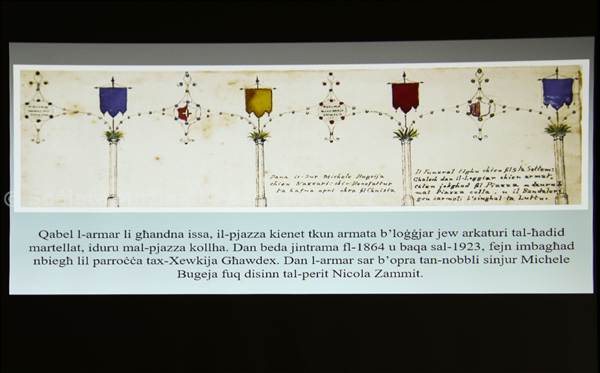 Dana is-Sur Michele Bugeja
chien Naxxari: chiv Benefattur
Il Funeral
Chaloch dan il-loggiar chien armat,
mal Piazza colla, u il Bandalori,
Qabel l-armar li għandna issa, il-pjazza kienet tkun armata b'loġġjar jew arkaturi tal-ħadid
martellat, iduru mal-pjazza kollha. Dan beda jintrama fl-1864 u baqa sal-1923, fejn imbagħad
nbiegħ lil parroċċa tax-Xewkija Għawdex. Dan l-armar sar b'opra tan-nobbli sinjur Michele
Bugeja fuq disinn tal-perit Nicola Zammit.